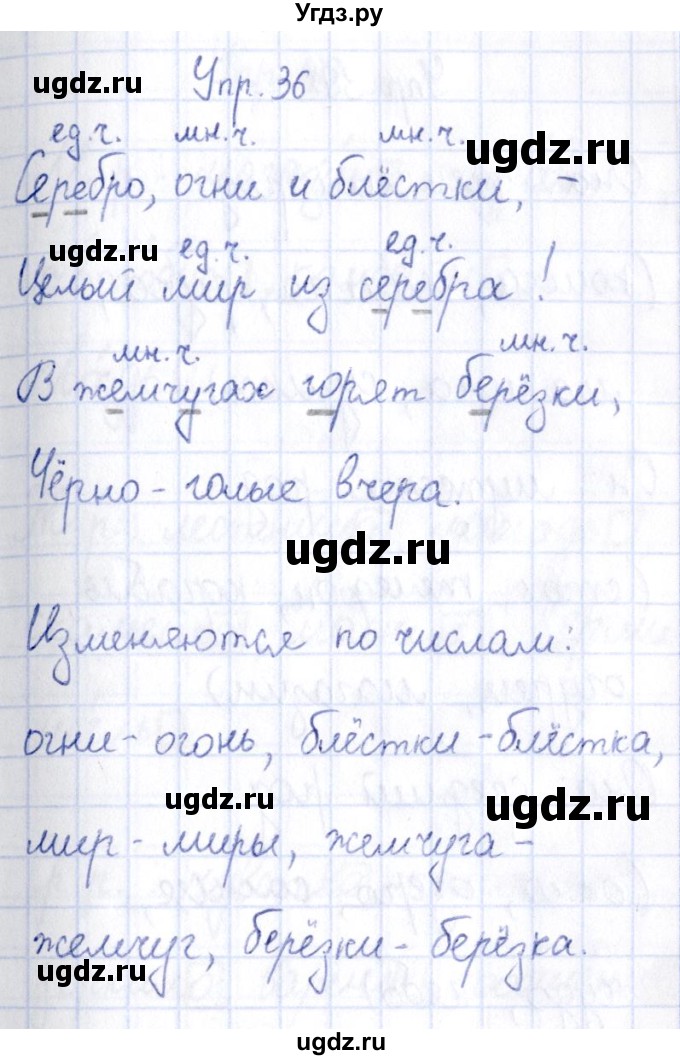 Угдз.ру
ugdz.ru
Упр. 36
ед.ч. мн.ч. мн.ч.
ugdz.ru
Серебро, огни и блёстки, –
ugdz.ru
ед.ч. ед.ч.
Целый мир из серебра!
мн.ч. мн.ч.
В жемчугах горят берёзки,
Чёрно-голые вчера.
ugdz.ru
Изменяются по числам:
огни - огонь, блёстки - блёстка,
ugdz.ru
ugdz.ru
мир - миры, жемчуга -
жемчуг, берёзки - берёзка.
ugdz.ru
ugdz.ru
ugdz.ru